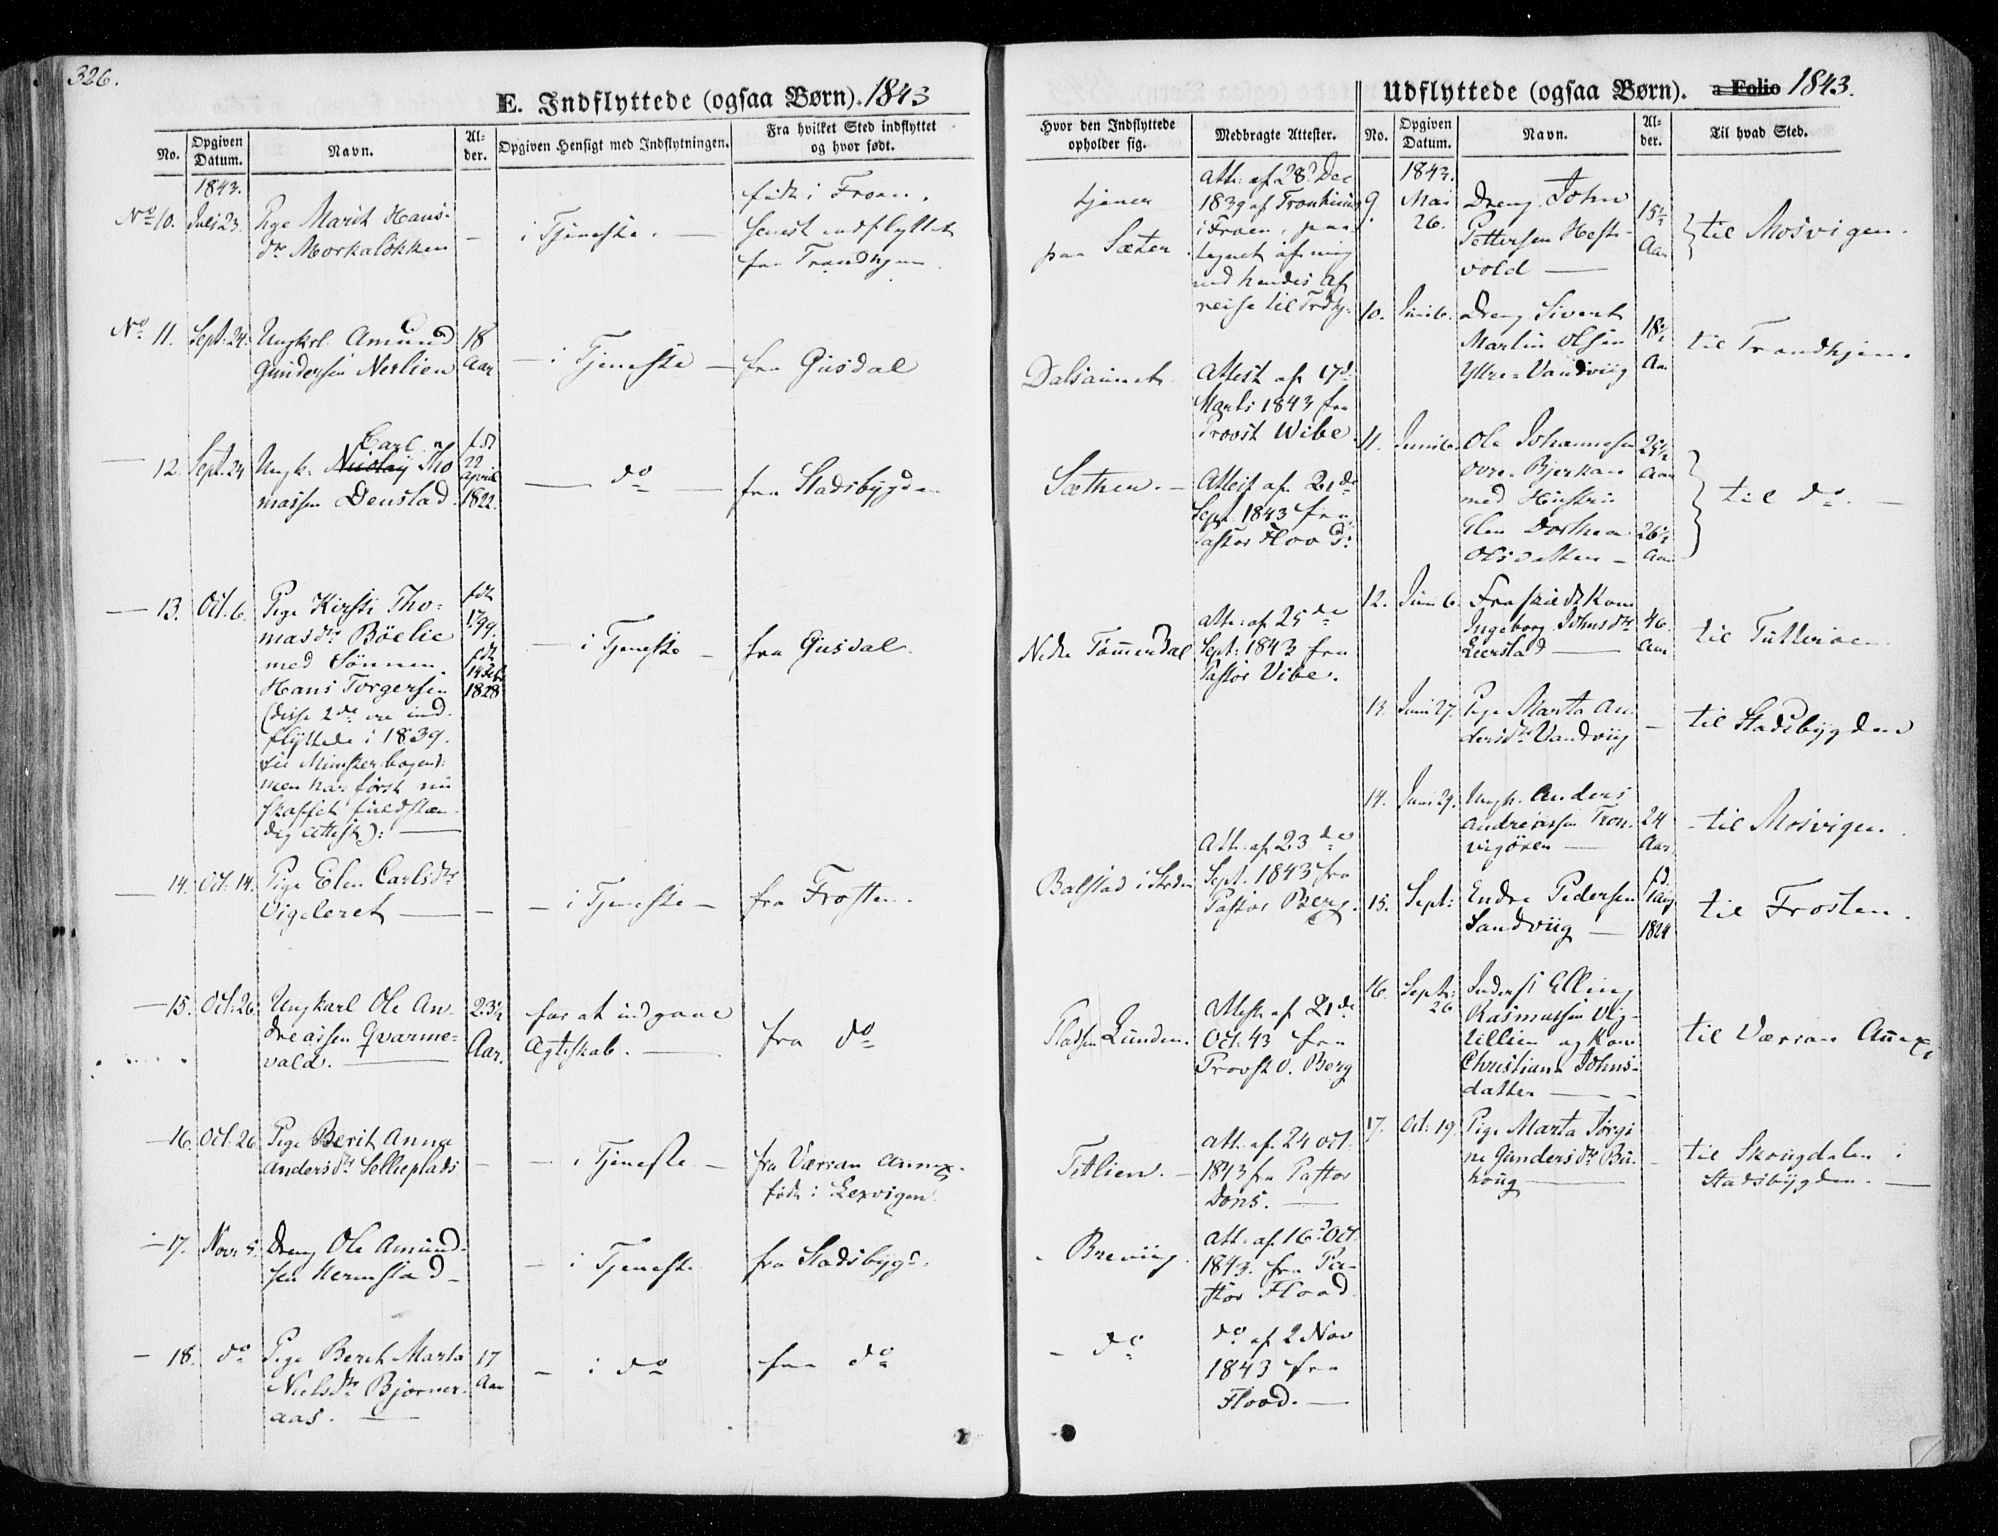 326.
E. Indflyttede (ogsaa Børn). 1843
No.
Opgiven Datum.
Navn.
Al-der.
Opgiven Hensigt med Indflytningen.
Fra hvilket Sted indflyttet og hvor født.
Hvor den Indflyttede opholder sig.
Medbragte Attester.
1843.
No 10.
Juli 23.
Pige Marit Hans-
dr Morkaløkken
—
i Tjeneste. —
født i Froen.
senest indflyttet
fra Trondhjem
tjener
paa Sæter
Att: af 28d Dec
1839 af
i Froen, paa
tegnet af mig
ved hendes Af
reise til Trdhj.
No 11.
Sept. 24.
Ungkrl. Amund
Gundersen Nerlien
18
Aar
— i Tjeneste —
fra Gusdal
Dalsaunet
Attest af 17d
Marts 1843 fra
Provst Wibe
— 12.
Sept. 24
Carl
Ungk. Nicolaj Tho
massen Denstad.
fdt
22
April
1822.
— do —
fra Stadsbygden
Sæthren. —
Attest af 21de
Sept. 1843 fra
Pastor Flood.
— 13.
Oct. 6.
Pige Kirsti Tho-
masdr Böelie
med Sönnen
Hans Torgersen
(disse 2de ere ind-
flyttede i 1839.
men har først nu
skaffet fuldstæn-
dig Attest): —
fdt
1799.
fdt
1828
— i Tjeneste —
fra Gusdal.
Nedre Tømmerdal
Att: af 25de
Sept: 1843 fra
Pastor Vibe.
— 14.
Oct: 14.
Pige Elen Carlsdr
Vigeleret —
—
— i Tjeneste —
fra Frosten.
Balstad i
Att: af 23de
Sept. 1843 fra
Pastor Berg.
— 15.
Oct: 26.
Ungkarl Ole An
dreassen Qvarme-
vald. —
23½
Aar.
for at indgaae
Ægteskab. —
fra do
Pladsen Lunden.
Attest af 21de
Oct. 43 fra
Provst O. Berg
— 16.
Oct. 26
Pige Berit Anna
Andersdr Sellieplads
—
— i Tjeneste —
fra Værran Annex.
født i Lexvigen.
Titlien. —
Att: af 24 Oct.
1843 fra Pastor
Dons. —
— 17.
Novr 5.
Dreng Ole Amund-
sen Hermstad —
— i Tjeneste
fra Stadsbygd.
Att: af 16d Oct.
1843. fra Pa-
stor Flood.
— 18.
do
Pige Berit Marta
Nielsdr Bjørner-
aas. —
17
Aar
— i do
fra do
— do
do af 2 Nov
1843 fra
Flood. —
Udflyttede (ogsaa Børn). a Folio 1843.
No.
Opgiven Datum.
Navn.
Al-der.
Til hvad Sted.
1843.
9.
Mai
26.
Dreng John
Pettersen Hest-
vold —
15½
Aar
til Mosvigen.
10.
Juni 6.
Dreng Sivert
Martin Olsen
Yttre-Vandviig
18½
Aar
til Trondhjem
11.
Juni 6.
Ole Johannesen
øvre Bjerkan
med Hustru
Elen Dorthea
Olsdatter —
25½
Aar
26½
Aar
til do. —
12.
Juni 6.
Fraskilt Kone
Ingeborg Johnsdr
Leerstad —
46.
Aar
til Tutterøen
13.
Juni 27.
Pige Marta An-
dersdr Vandviig
—
til Stadsbygden
14.
Juni 29.
Ungk. Anders
Andreassen Tron-
vigøren —
24
Aar.
til Mosvigen.
15.
Sept:
Endre Pedersen
Sandviig —
fd.
1824
til Frosten.
16.
Sept:
26
Inderst Elling
Rasmussen Vig-
tillien og Kone
Christiana Johns-
datter —
til Værran Annex
17.
Oct: 19.
Pige Marta Jørgi
ne Gundersdr Bu-
houg —
—
til Skougdalen i
Stadsbygden. —